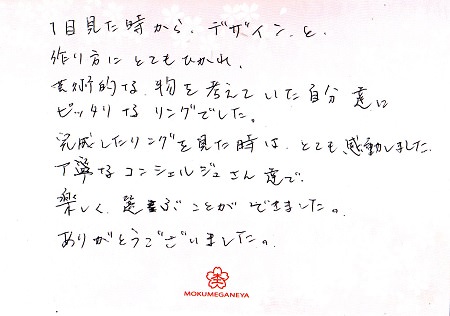 1目見た時から、デザインと、
作り方にとてもひかれ、
芸術的な物を考えていた自分達に
ピッタリなリングでした。
完成したリングを見た時は、とても感動しました。
丁寧なコンシェルジュさん達で、
楽しく、選ぶことができました。
ありがとうございました。
MOKUMEGANEYA